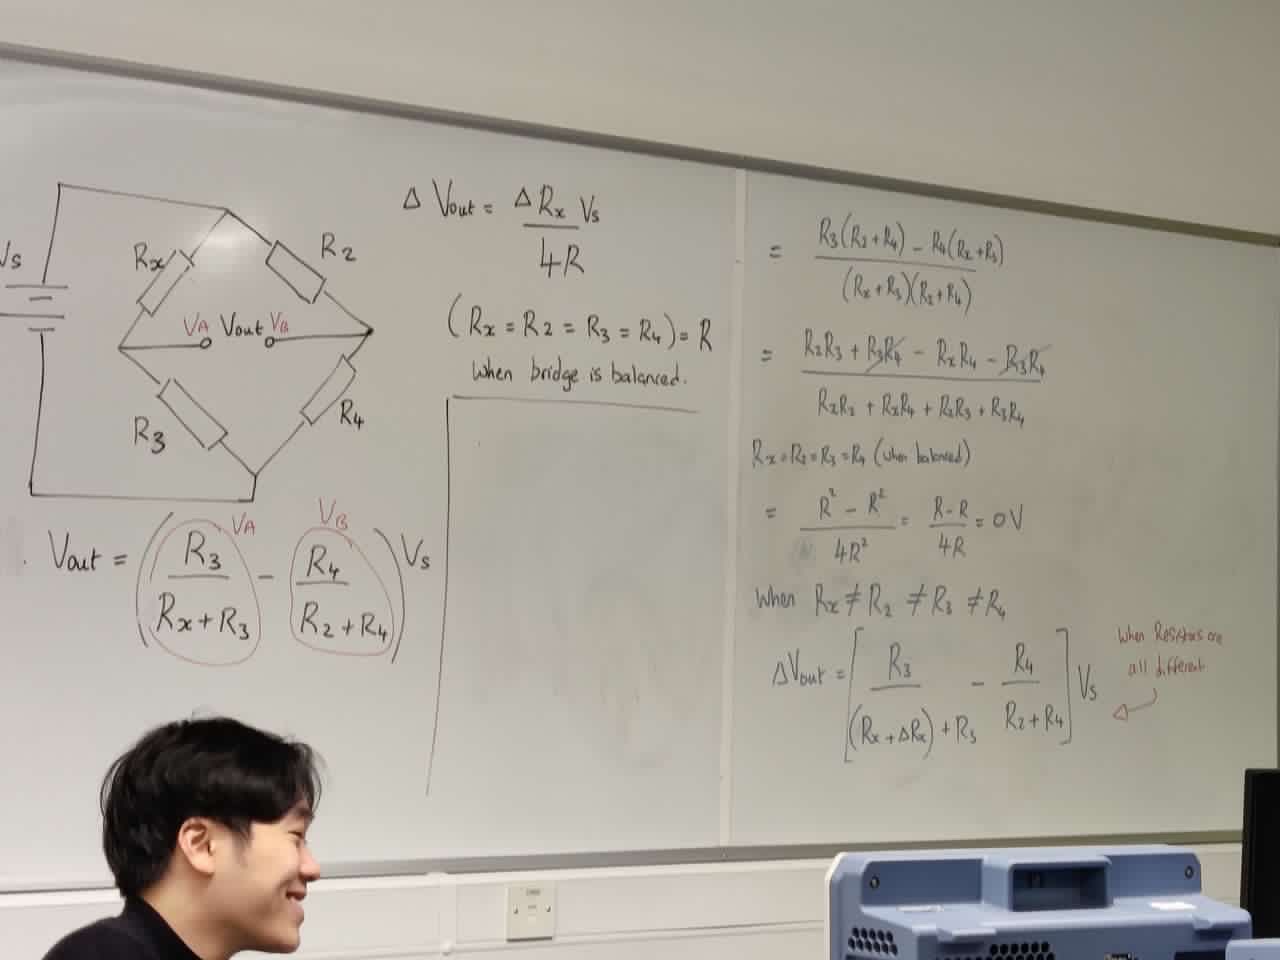 Vs
Rx
R2
VA Vout VB
R3
R4
Vout = ( R3 / Rx + R3 − R4 / R2 + R4 ) Vs
VA
VB
Δ Vout = Δ Rx Vs / 4R
(Rx = R2 = R3 = R4) = R
When bridge is balanced.
= R3(R2+R4) − R4(Rx+R3) / (Rx+R3)(R2+R4)
= R2R3 + R3R4 − RxR4 − R3R4 / RxR2 + RxR4 + R2R3 + R3R4
Rx = R2 = R3 = R4 (when balanced)
= R² − R² / 4R² = R − R / 4R = 0V
When Rx ≠ R2 ≠ R3 ≠ R4
ΔVout = [ R3 / (Rx + ΔRx) + R3 − R4 / R2 + R4 ] Vs
When Resistors are
all different